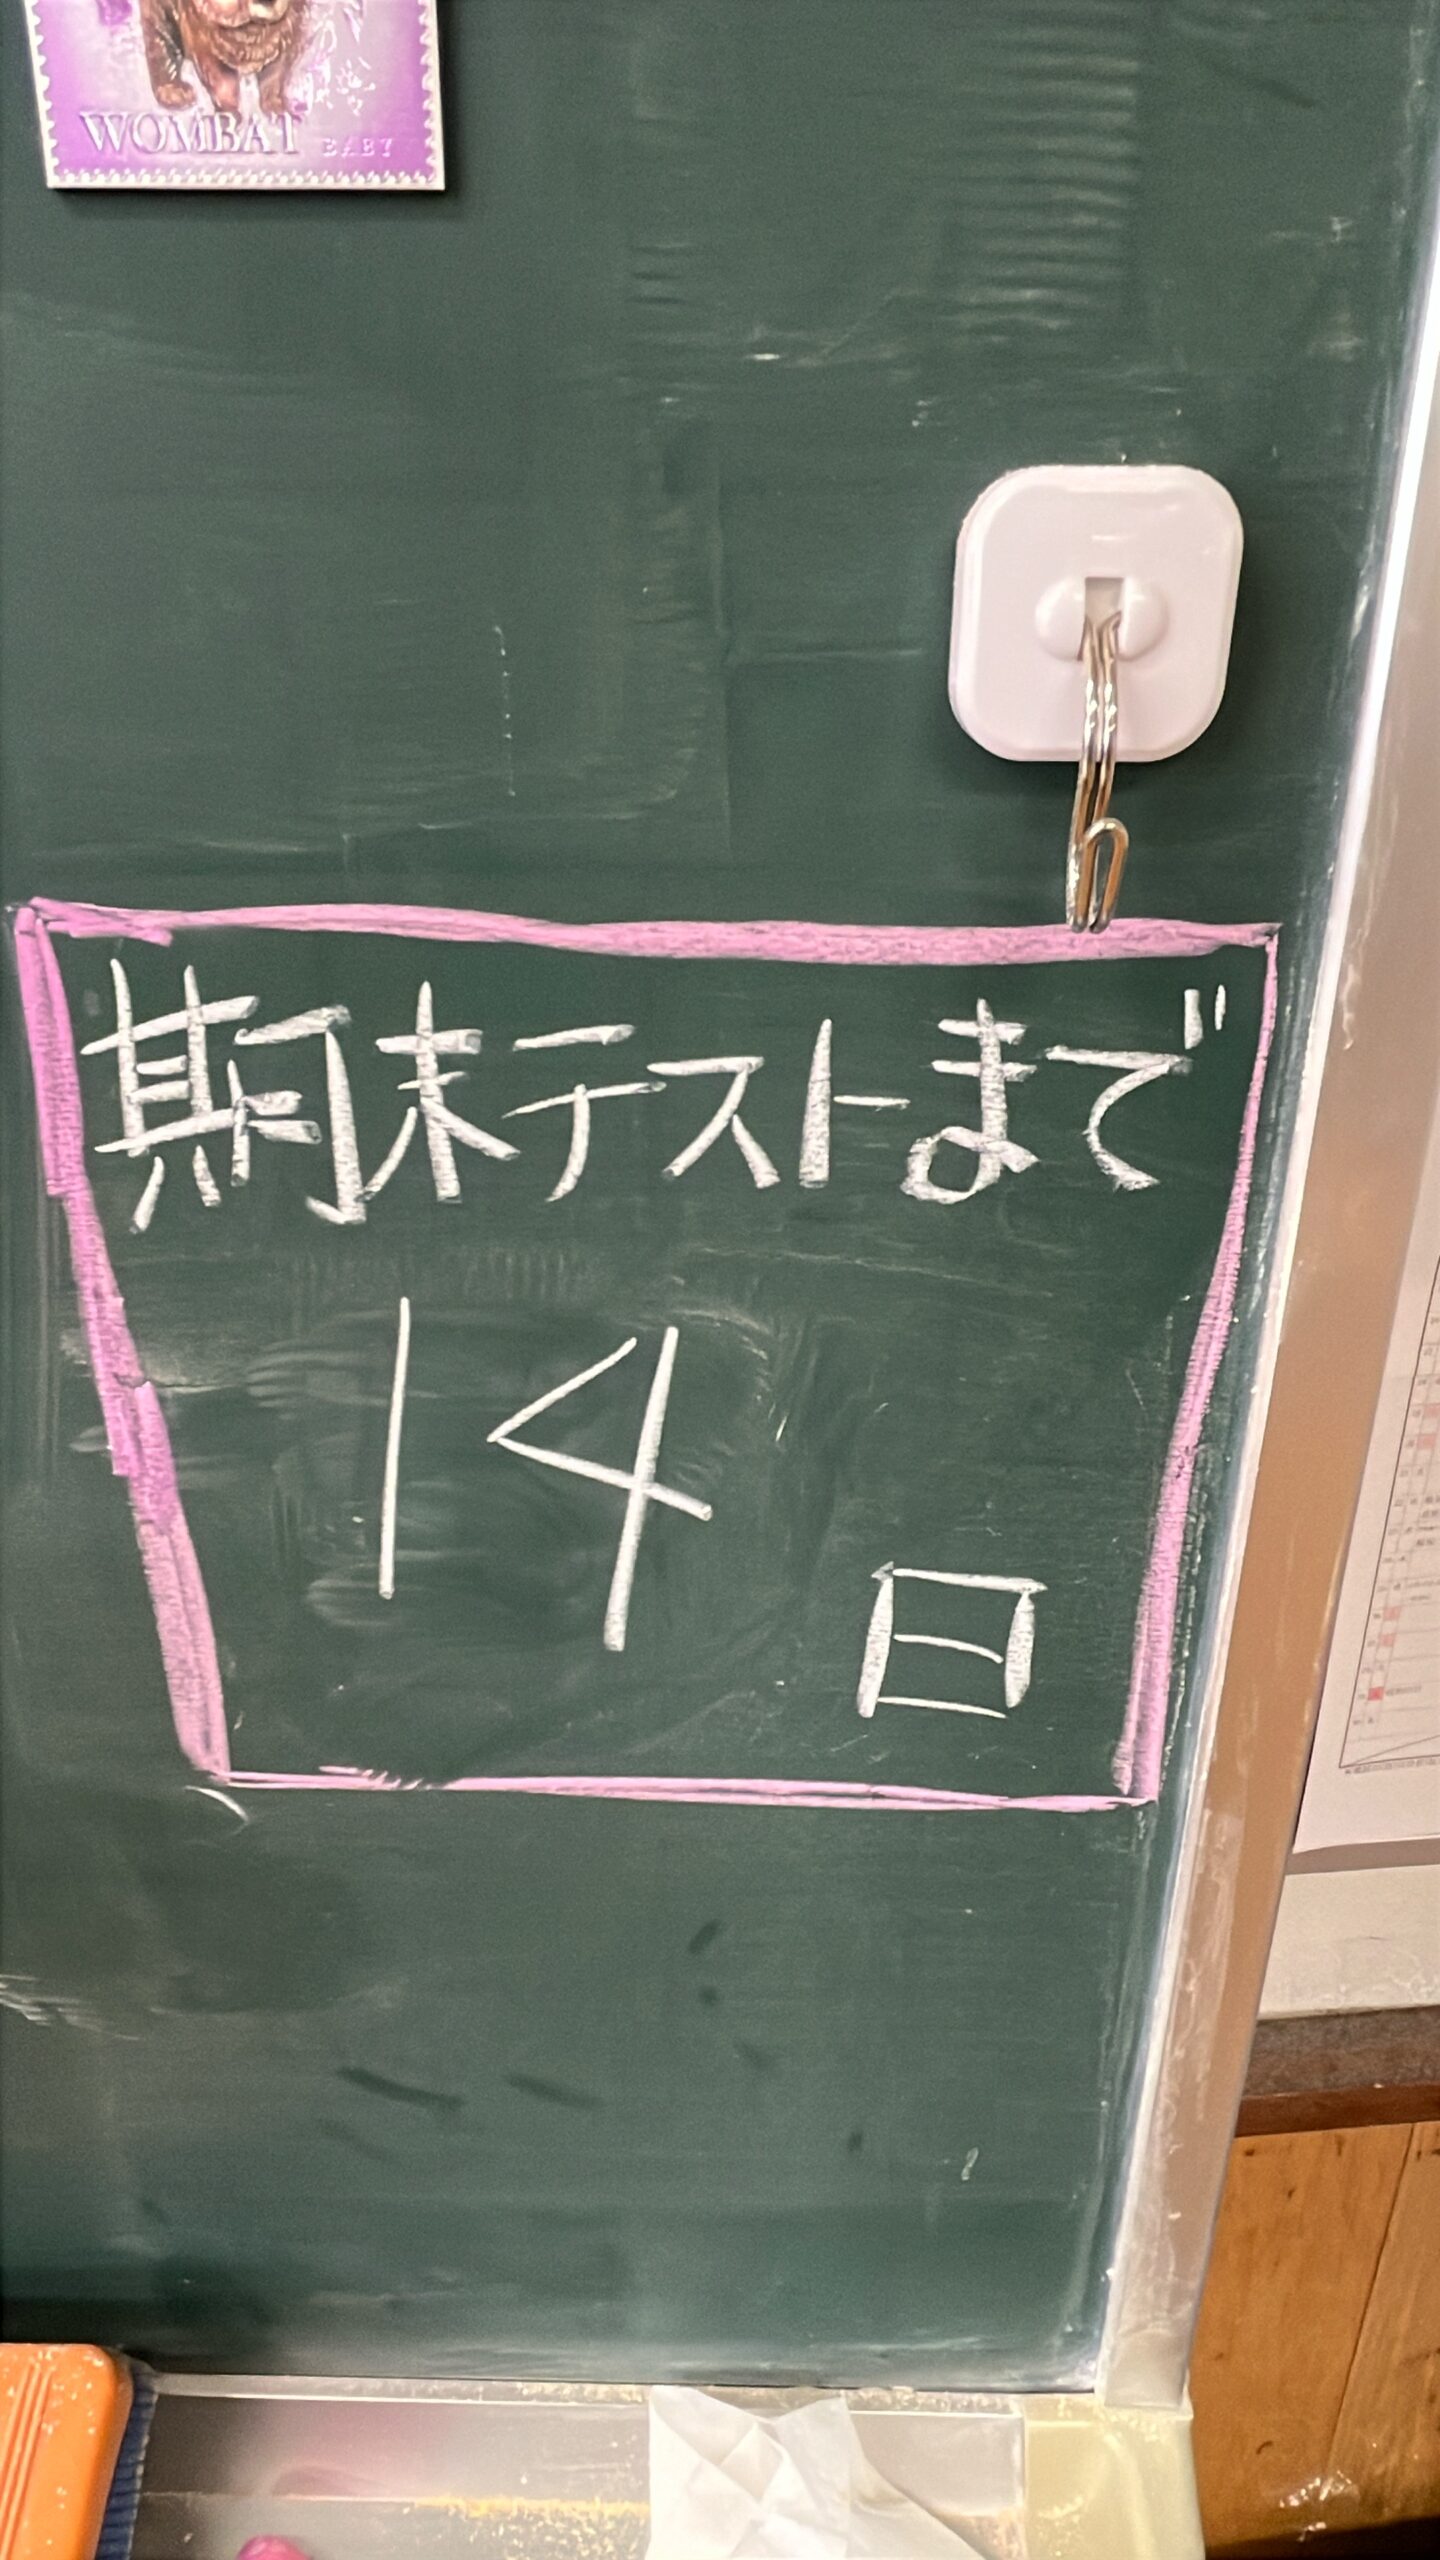 WOMBAT BABY
期末テストまで
14
日